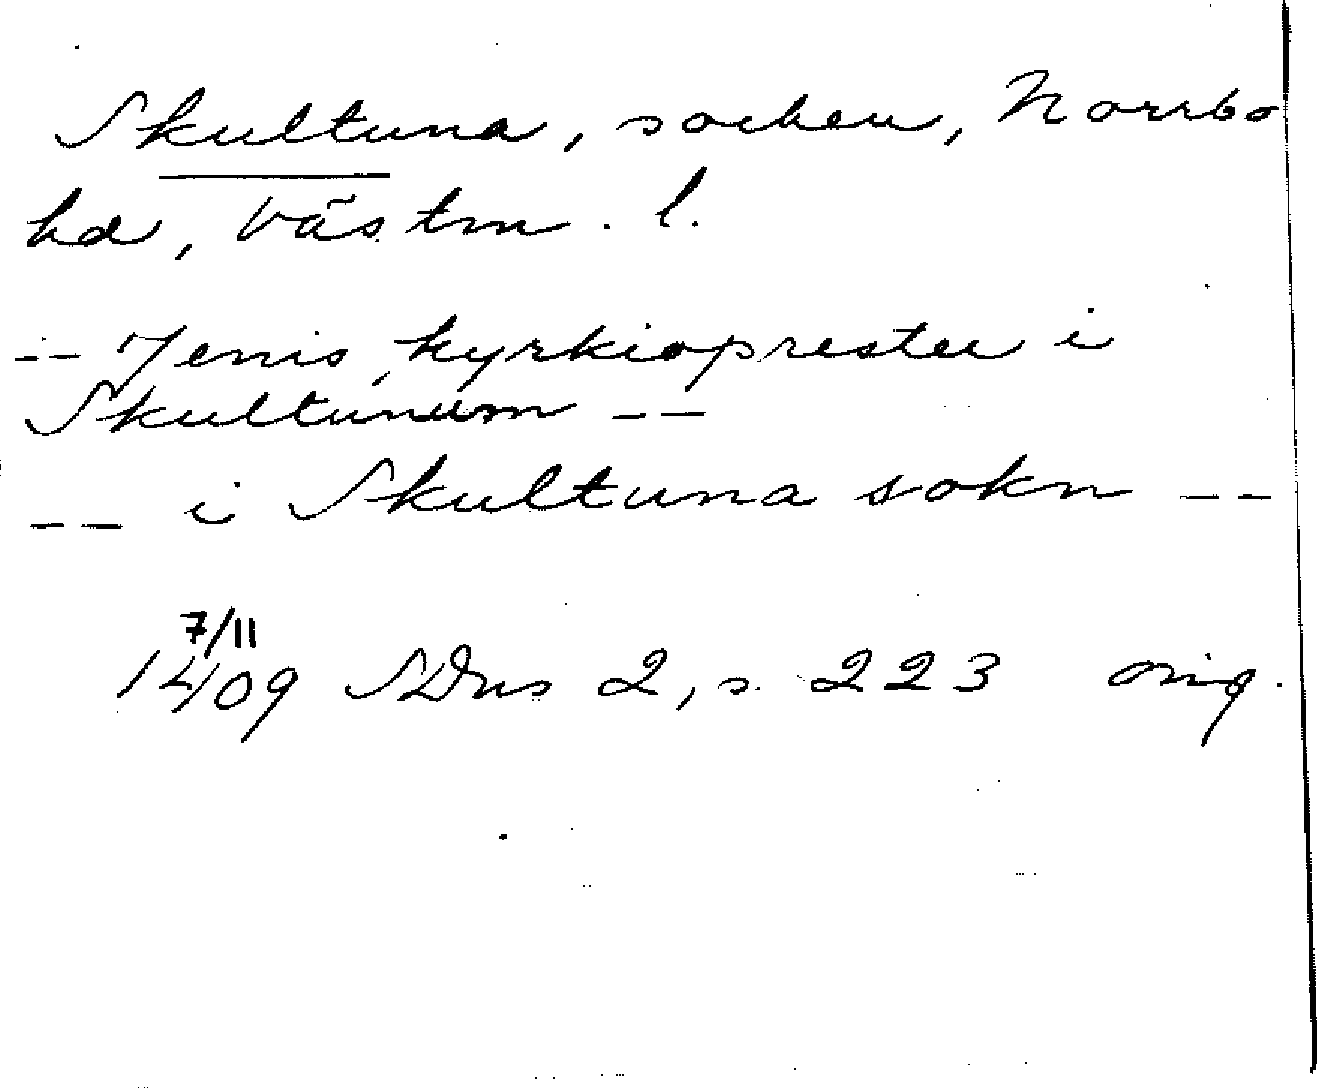 Skultuna, socken, Norrbo
hd, Västm. l.
-- Jenis, kyrkioprester i
Skultunum --
-- i Skultuna sokn --
7/11
1409 SDns 2, s. 223 orig.